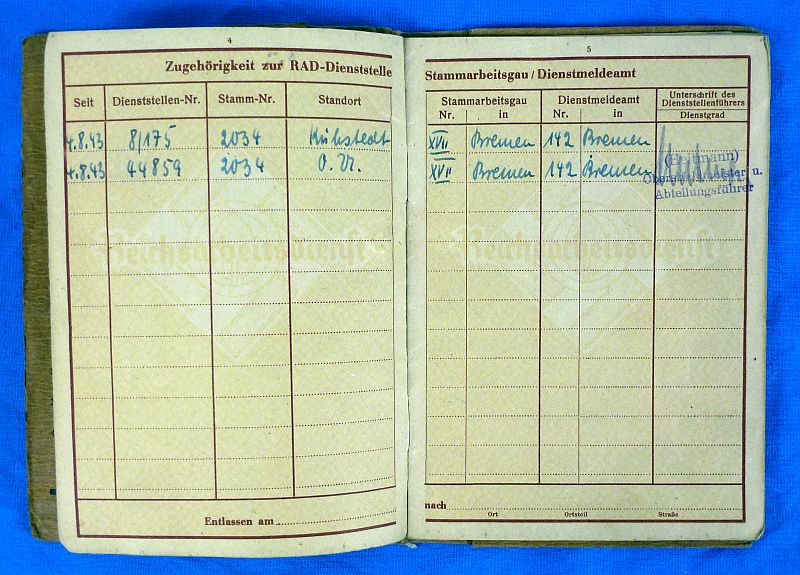 4
Zugehörigkeit zur RAD-Dienststelle
Seit Dienststellen-Nr. Stamm-Nr. Standort
4.8.43 8/175 2034 Kuhstedt
4.8.43 44859 2034 O.U.
Reichsarbeitsdienst
Entlassen am
5
Stammarbeitsgau/Dienstmeldeamt
Stammarbeitsgau Dienstmeldeamt Unterschrift des Dienststellenführers
Nr. in Nr. in Dienstgrad
XVII Bremen 142 Bremen
XVII Bremen 142 Bremen
u.
Abteilungsführer
Reichsarbeitsdienst
nach
Ort Ortsteil Straße